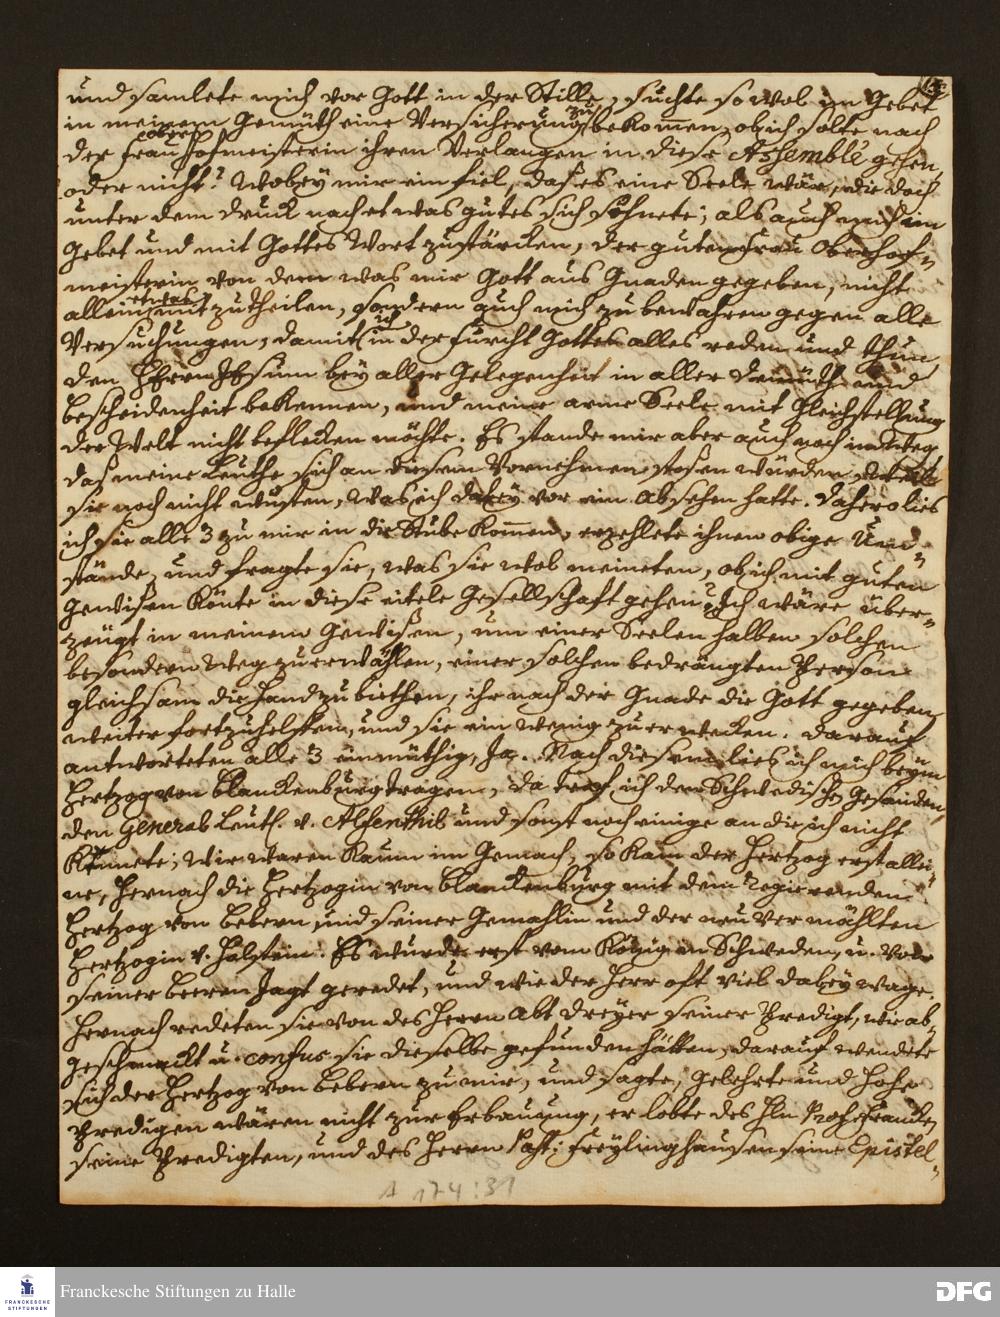 und samlete mich vor Gott in der Stille, suchte so wol im Gebet
in meinem Gemüth eine Versicherung zu bekommen, ob ich solte nach
der Frau Ober Hofmeisterin ihren Verlangen in diese Assemblé gehen,
oder nicht? Wobey mir ein fiel, daß es eine Seele wär, die doch
unter dem Druck nach etwas gutes sich sehnete; als auch mich im
Gebet und mit Gottes Wort zustärcken, der guten Frau Oberhof-
meisterin von dem was mir Gott aus Gnaden gegeben, nicht
allein etwas mit zutheilen, sondern auch mich zu bewahren gegen alle
Versuchungen, damit ich in der Furcht Gottes alles reden und thun
den Herrn JEsum bey aller Gelegenheit in aller Demuth und
bescheidenheit bekennen, und meine arme Seele mit Gleichstellung
der Welt nicht beflecken möchte. Es stande mir aber auch noch im Weg
daß meine Leuthe sich an diesem Vornehmen stosen würden,
sie noch nicht wusten, was ich dabey vor ein Absehen hatte. Dahero lies
ich sie alle 3 zu mir in die Stube kommen, erzehlete ihnen obige Um-
stände, und fragte sie, was sie wol meineten, ob ich mit guten
Gewißen könte in diese eitele Gesellschaft gehen? Ich wäre über-
zeügt in meinem Gewißen, um einer Seelen halben solchen
besondern Weg zu erwählen, einer solchen bedrängten Person
gleichsam die Hand zu biethen, ihr nach der Gnade die Gott gegeben
weiter fortzuhelffen, und sie ein wenig zu erwecken. Darauf
antworteten alle 3 einmüthig, Ja. Nach diesem lies ich mich beym
Hertzog von Blanckenburg tragen, da traf ich den Schwedischen Gesanden,
den General Leut. v. und sonst noch einige an die ich nicht
kennete; Wir waren kaum im Gemach, so kam der Hertzog erst allei-
ne, hernach die Hertzogin von Blanckenburg mit dem Regierenden
Hertzog von Bebern, und seiner Gemahlin und der neu Vermählten
Hertzogin v. Holstein. Es wurde erst vom König in Schweden, u. von
seiner Beeren Jagt geredet, und wie der Herr oft viel dabey wage.
Hernach redeten sie von des Herrn Abt Dreyer seiner Predigt, wie ab-
geschmackt u. confus sie dieselbe gefunden hätten, darauf wendete
sich der Hertzog von Bebern zu mir, und sagte, gelehrte und hohe
Predigen wären nicht zur Erbauung, er lobte des Hln Prof. Francken
seine Predigten, und des Herrn Past. Freylinghausen seine Epistel-
A 174:31
Franckesche Stiftungen zu Halle
FRANCKESCHE
STIFTUNGEN
DFG